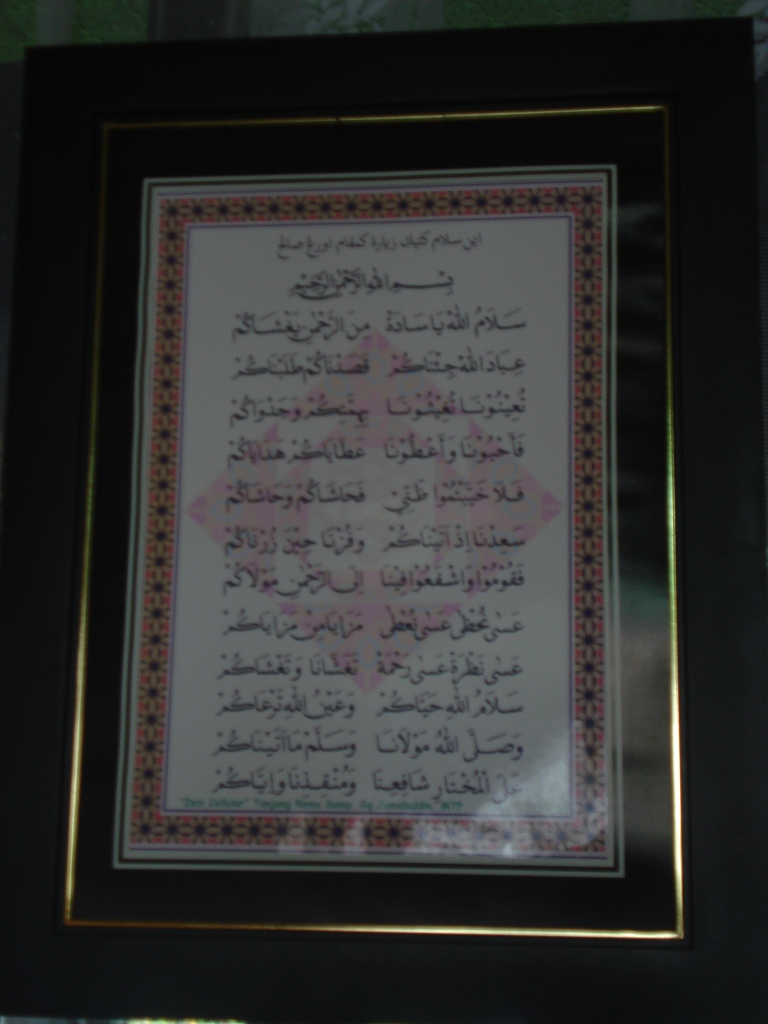 اين سلام كتيك زيارة كمقام اورڠ صالح
بِسْمِ اللهِ الرَّحْمٰنِ الرَّحِيْمِ
سَلَامُ اللهِ يَا سَادَةْ مِنَ الرَّحْمٰنِ يَغْشَاكُمْ
عِبَادَ اللهِ جِئْنَاكُمْ قَصَدْنَاكُمْ طَلَبْنَاكُمْ
تُعِيْنُوْنَا تُغِيْثُوْنَا بِهِمَّتِكُمْ وَجَدْوَاكُمْ
فَأَحْبُوْنَا وَأَعْطُوْنَا عَطَايَاكُمْ هَدَايَاكُمْ
فَلَا خَيَّبْتُمُوْا ظَنِّيْ فَحَاشَاكُمْ وَحَاشَاكُمْ
سَعِدْنَا إِذْ أَتَيْنَاكُمْ وَفُزْنَا حِيْنَ زُرْنَاكُمْ
فَقُوْمُوْا وَاشْفَعُوْا فِيْنَا إِلَى الرَّحْمٰنِ مَوْلَاكُمْ
عَسَى نُحْظَى عَسَى نُعْطَى مَزَايَا مِنْ مَزَايَاكُمْ
عَسَى نَظْرَةْ عَسَى رَحْمَةْ تَغْشَانَا وَتَغْشَاكُمْ
سَلَامُ اللهِ حَيَّاكُمْ وَعَيْنُ اللهِ تَرْعَاكُمْ
وَصَلَّى اللهُ مَوْلَانَا وَسَلَّمْ مَا أَتَيْنَاكُمْ
عَلَى الْمُخْتَارِ شَافِعِنَا وَمُنْقِذِنَا وَإِيَّاكُمْ
"Zain Celluler" Tanjung Rema Samp. Ag Jamaluddin MTP